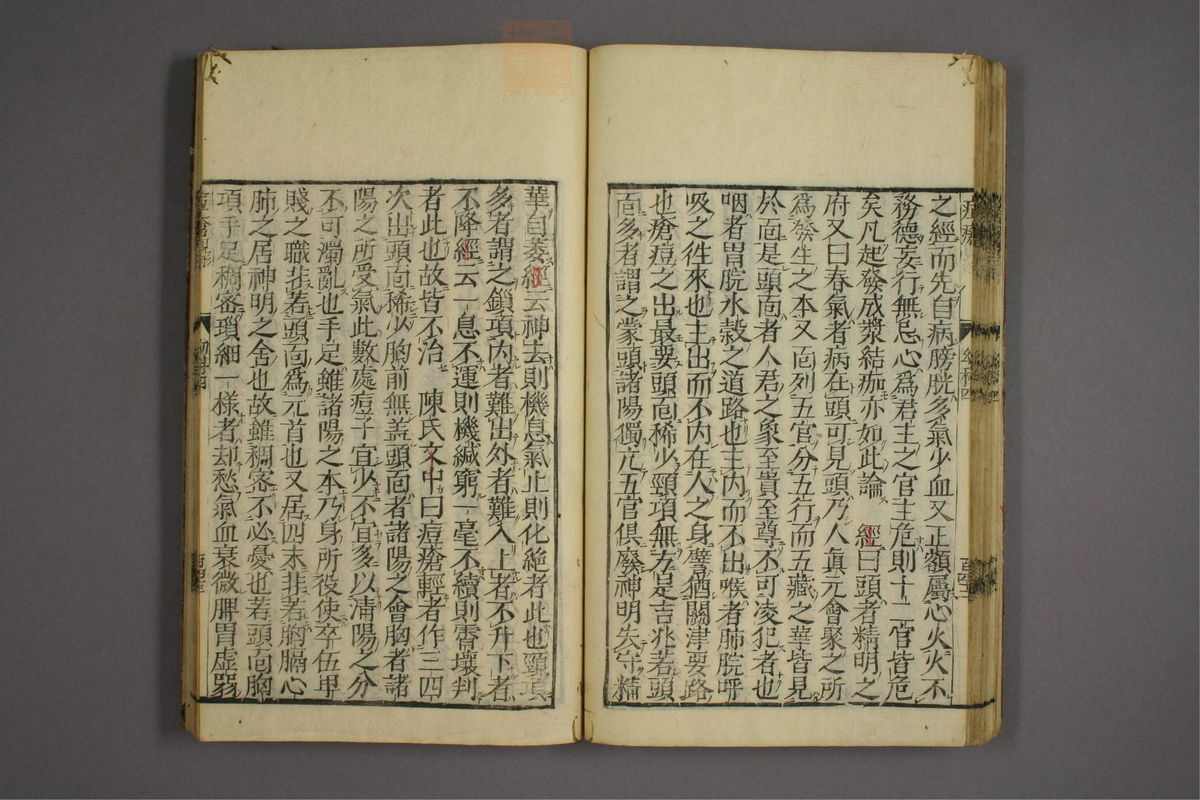 之經而先自病膀胱多氣少血又正額屬心火火不
務德妄行無忌心爲君主之官主危則十二官皆危
矣凡起發成漿結痂亦如此論　經曰頭者精明之
府又曰春氣者病在頭可見頭乃人眞元會聚之所
爲發生之本又面列五官分五行而五藏之華皆見
於面是頭面者人君之象至貴至尊不可凌犯者也
咽者胃脘水榖之道路也主內而不出喉者肺脘呼
吸之徃來也主出而不內在人之身譬猶關津要路
也瘡痘之出最要頭面稀少頸項無方是吉兆若頭
面多者謂之蒙頭諸陽獨亢五官俱廢神明失守精
華自萎經云神去則機息氣止則化絶者此也頸項
多者謂之鎖項內者難出外者難入上者不升下者
不降經云一息不運則機緘窮一毫不續則霄壤判
者此也故皆不治　陳氏文中曰痘瘡輕者作三四
次出頭面稀少胸前無蓋頭面者諸陽之會胸者諸
陽之所受氣此數處痘子宜少不宜多以淸陽之分
不可濁亂也手足雖諸陽之本乃身所役使卒伍卑
賤之職非若頭面爲元首也又居四末非若胸膈心
肺之居神明之舍也故雖稠密不必憂也若頭面胸
項手足稠密瑣細一樣者却愁氣血衰微脾胃虛弱